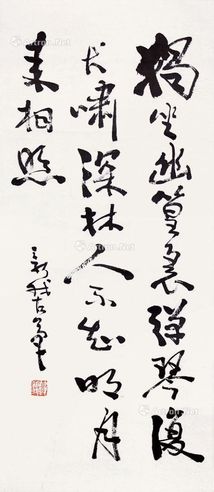 獨坐幽篁裏彈琴復
長嘯深林人不知明月
來相照